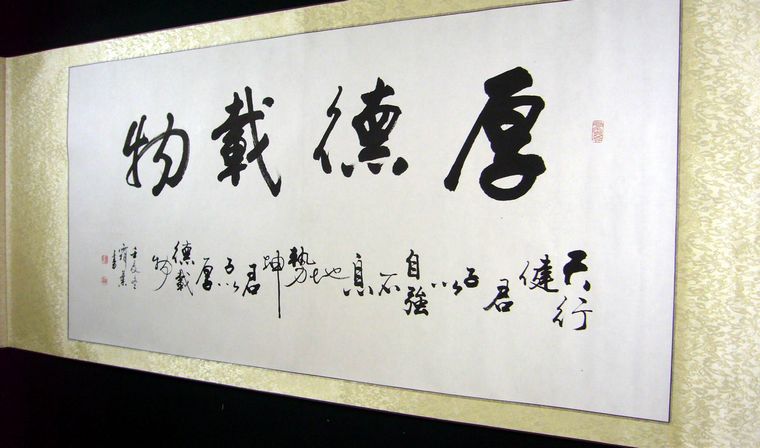 厚德載物
天行健君子以自強不息地勢坤君子以厚德載物